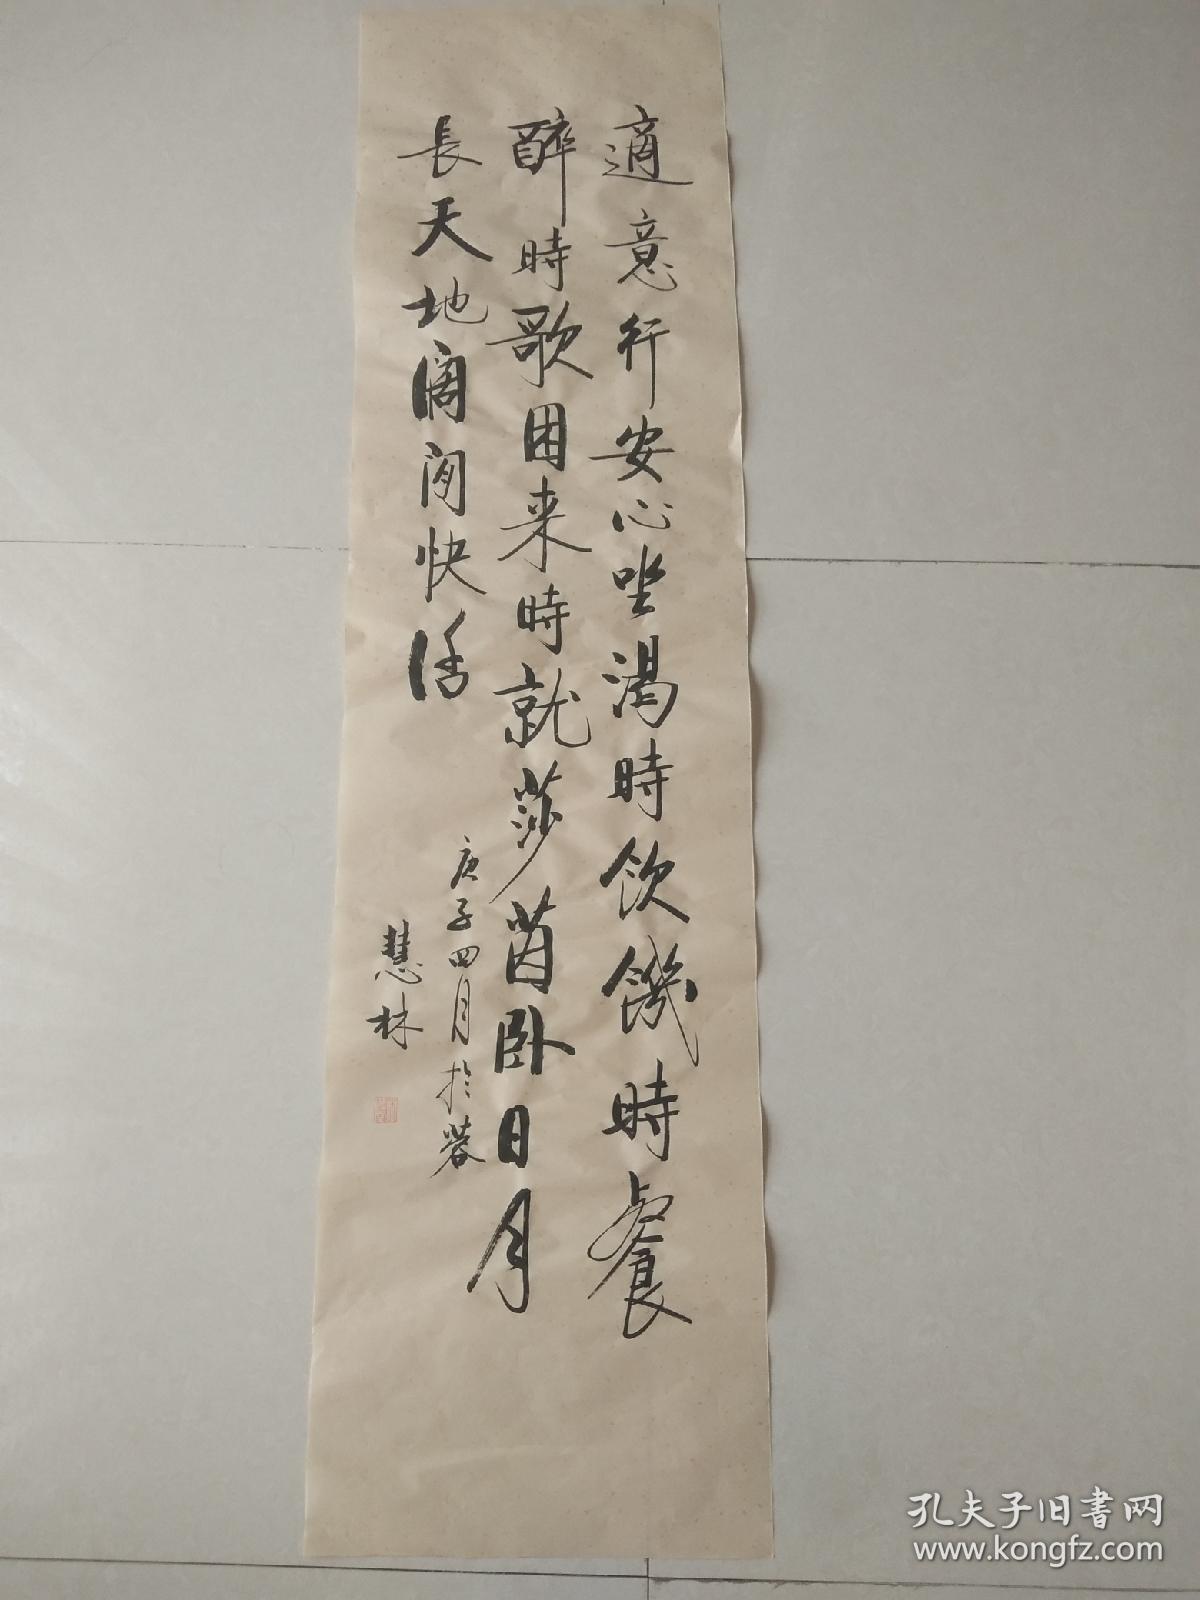 適意行安心坐渴時飲饑時餐
醉時歌困来時就莎茵卧日月
長天地闊闲快活
庚子四月於蓉
慧林
孔夫子旧書网
www.kongfz.com